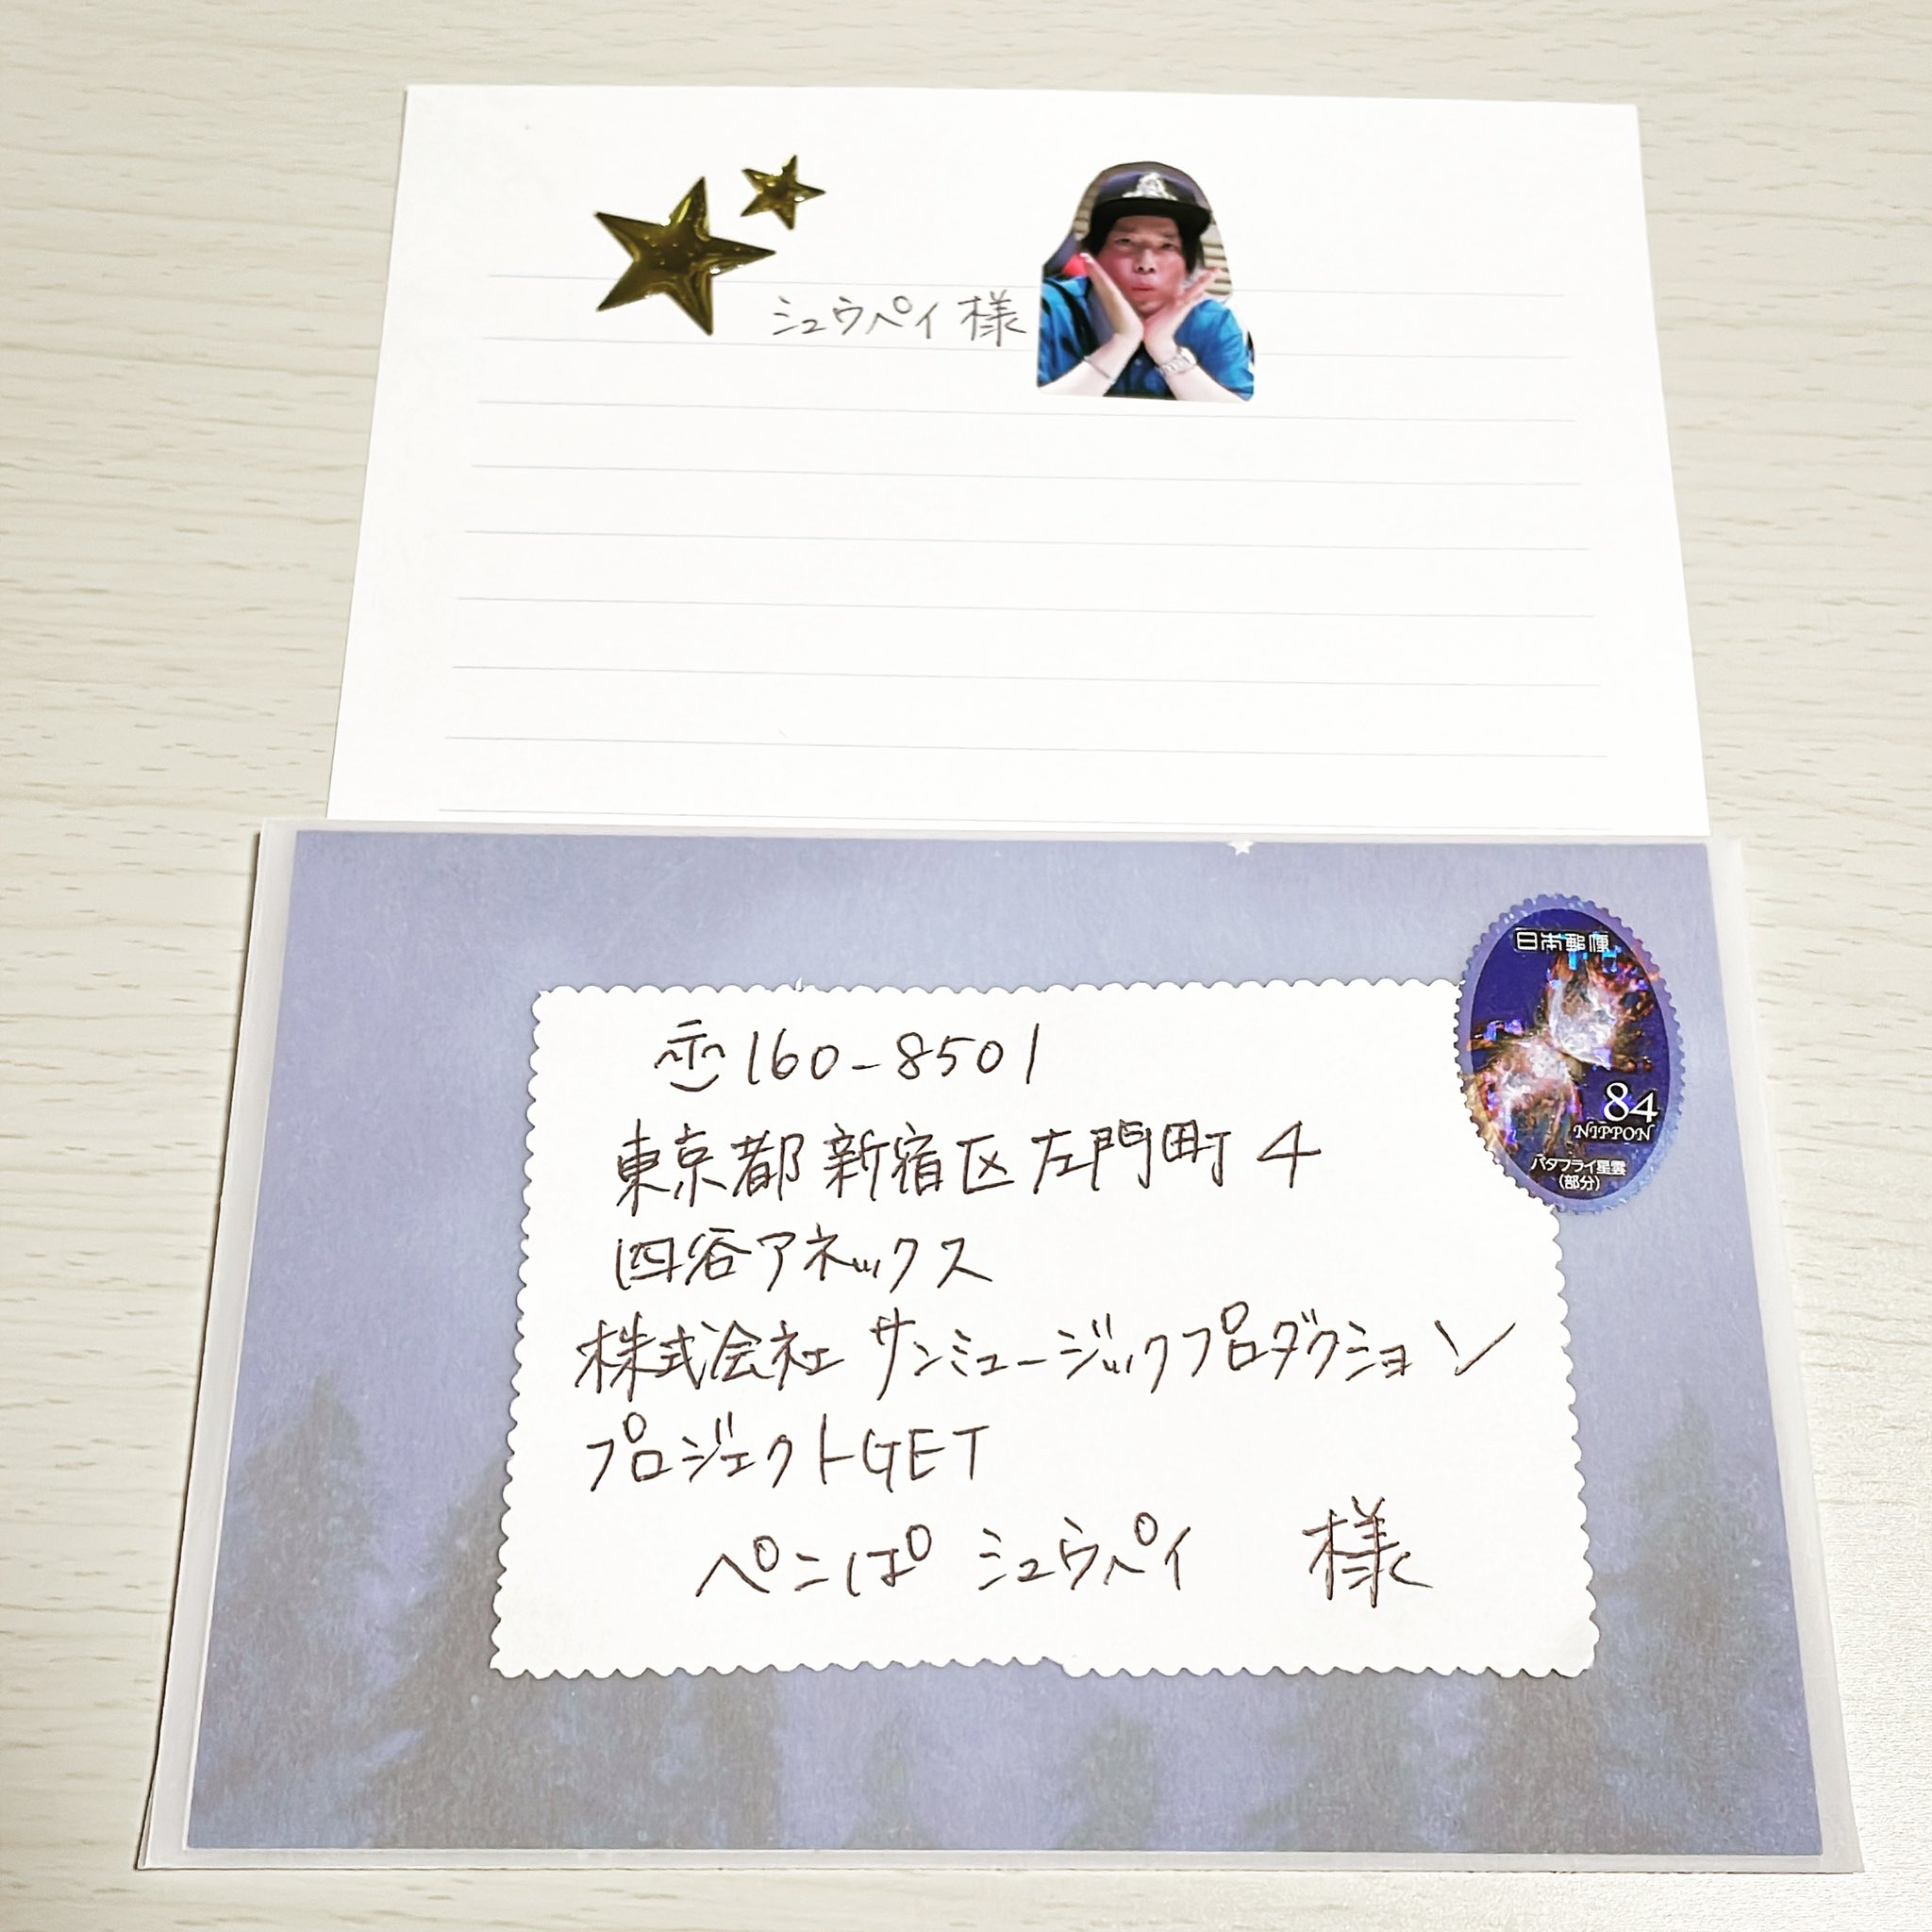 シュウペイ 様
日本郵便
84
NIPPON
バタフライ星雲
(部分)
〒160-8501
東京都新宿区左門町4
四谷アネックス
株式会社 サンミュージックプロダクション
プロジェクトGET
ぺこぱ シュウペイ 様